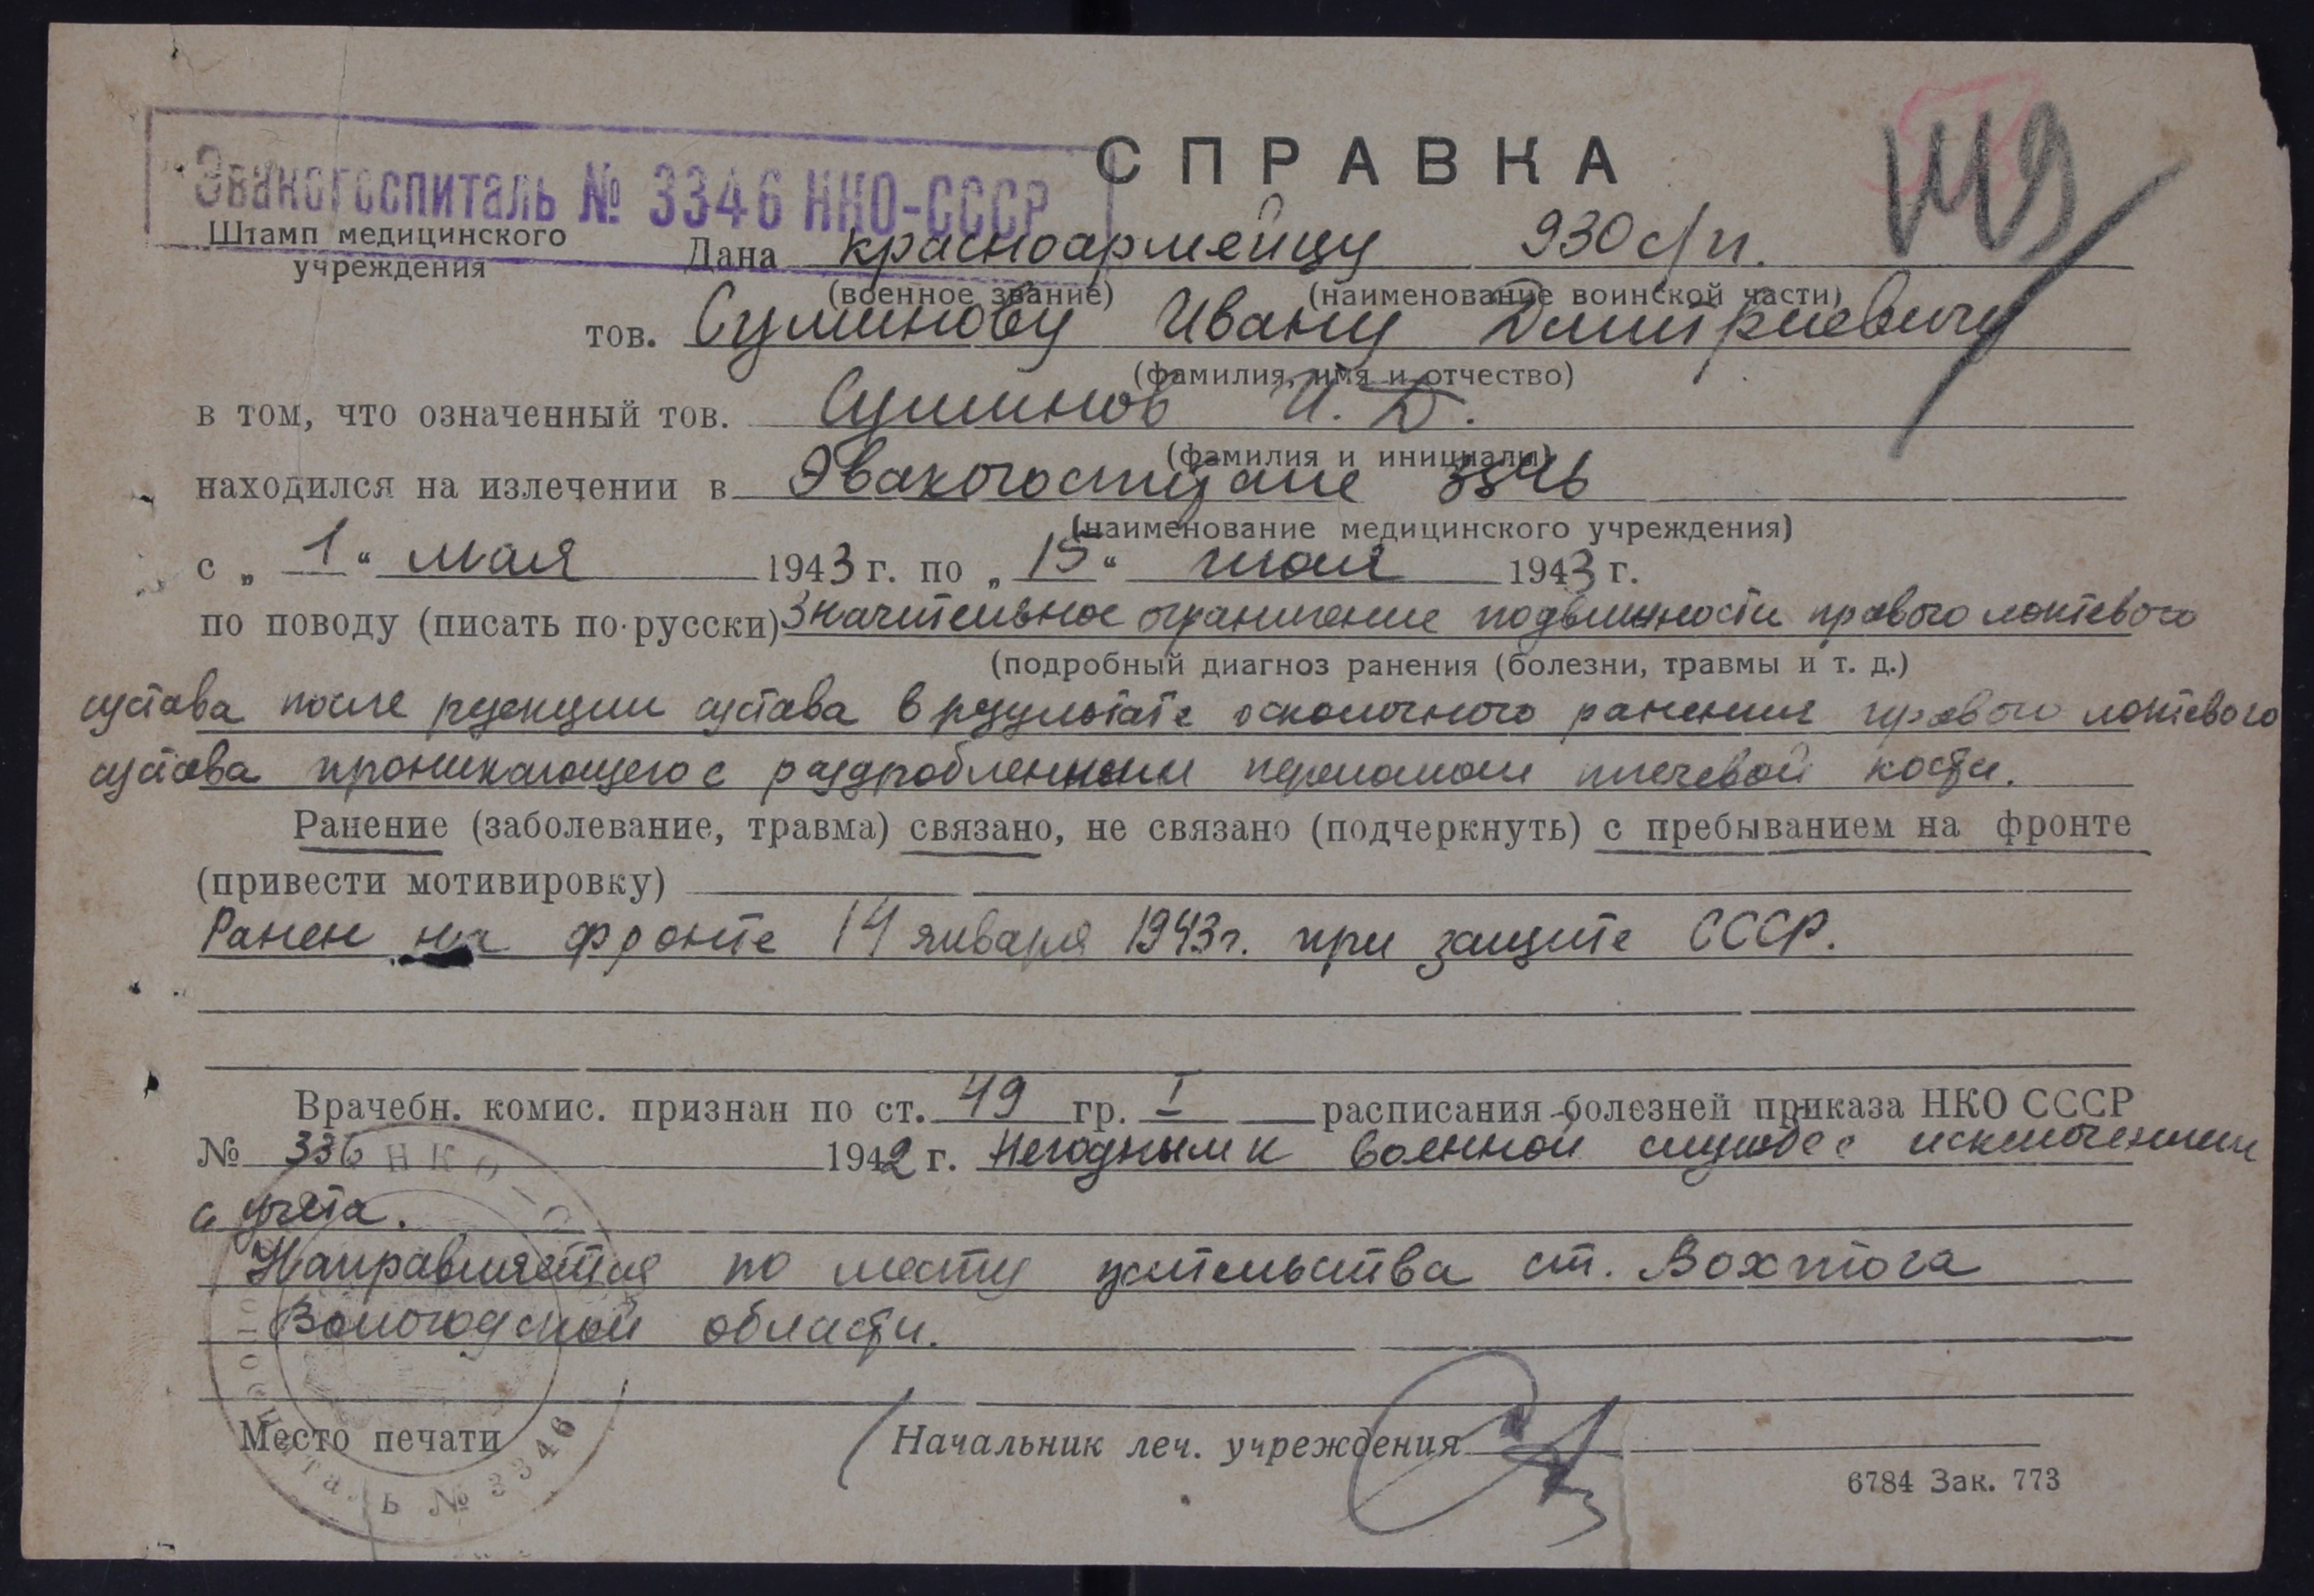 СПРАВКА
Эвакогоспиталь № 3346 НКО-СССР
Штамп медицинского
учреждения
Дана красноармейцу 930 с/п.
(военное звание) (наименование воинской части)
тов. Суминову Ивану Дмитриевичу
(фамилия, имя и отчество)
в том, что означенный тов. Суминов И. Д.
(фамилия и инициалы)
находился на излечении в Эвакогоспитале 3346
(наименование медицинского учреждения)
с „ 1 “ мая 1943 г. по „ 15 “ 1943 г.
по поводу (писать по-русски) Значительное ограничение подвижности правого локтевого
(подробный диагноз ранения (болезни, травмы и т. д.)
сустава после резекции сустава в результате осколочного ранения правого локтевого
сустава проникающего с раздробленным переломом плечевой кости.
Ранение (заболевание, травма) связано, не связано (подчеркнуть) с пребыванием на фронте
(привести мотивировку)
Ранен на фронте 14 января 1943 г. при защите СССР.
Врачебн. комис. признан по ст. 49 гр. I расписания болезней приказа НКО СССР
№ 336 1942 г. Негодным к военной службе с исключением
с учета.
Направляется по месту жительства ст. Вохтога
Вологодской области.
Место печати Начальник леч. учреждения
6784 Зак. 773